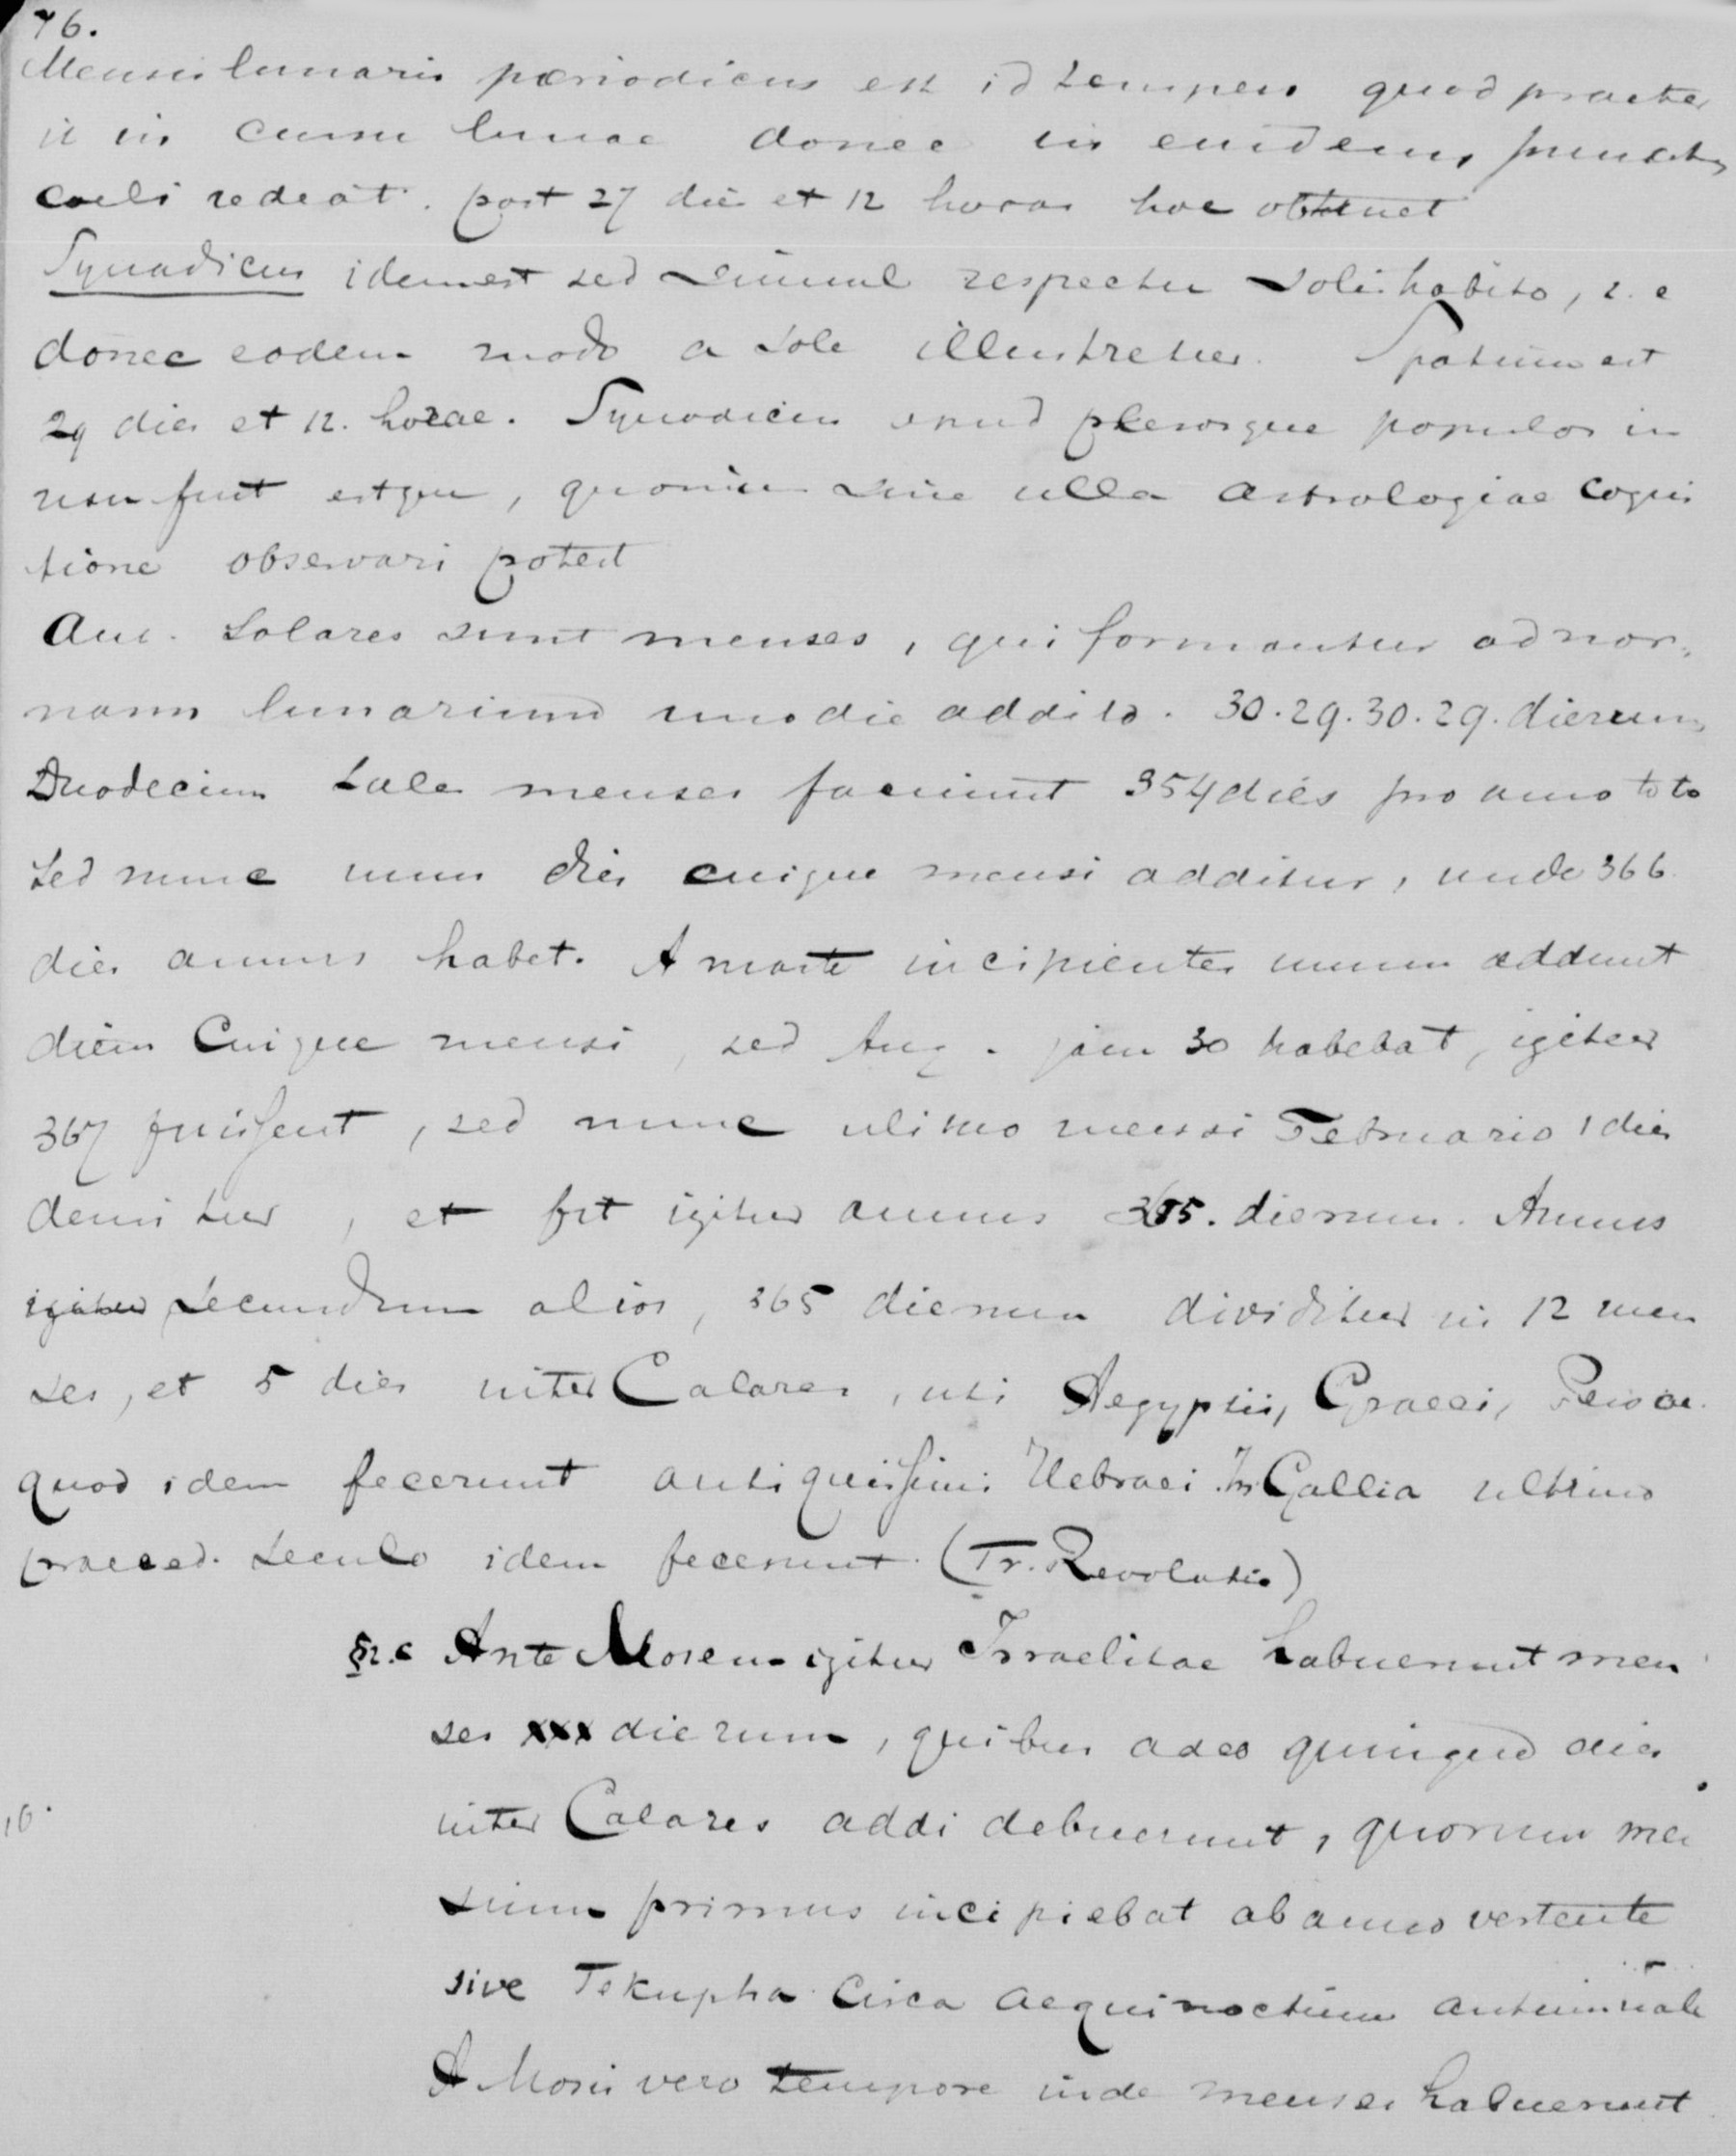 76.
Mensis lunaris periodicus est id tempus quod praeter
it in cursu lunae donec in eundem punctum
coeli redeat. post 27 dies et 12 horas hoc obtinet
Synodicus idem est sed simul respectu soli habito, i. e
donec eodem modo a sole illustretur. Spatium est
29 dies et 12. horae. Synodicus apud plerosque populos in
usu fuit estque, quoniam sine ulla astrologiae cogni
tione observari potest
Solares sunt menses, qui formantur ad nor-
mam lunarium uno die addito. 30. 29. 30. 29. dierum
Duodecim tales menses faciunt 354 dies pro anno toto
sed nunc unus dies cuique mensi additur, unde 366
dies annus habet. A marte incipientes unum addunt
diem cuique mensi, sed Aug. jam 30 habebat, igitur
367 fuissent, sed nunc ultimo mensi Februario 1 dies
demitur, et fit igitur annus 365. dierum. Annus
igitur secundum alios, 365 dierum dividitur in 12 men
ses, et 5 dies inter Calares, uti Aegyptii, Graeci, Persae.
quod idem fecerunt antiquissimi Hebraei. In Gallia ultimo
praeced. seculo idem fecerunt. (Fr. Revolutio)
§2.c Ante Mosem igitur Israelitae habuerunt men
ses xxx dierum, quibus adeo quinque dies
inter Calares addi debuerunt, quorum men
sium primus incipiebat ab anno vertente
sive Tekupha circa aequinoctium autumnale
A Mosis vero tempore inde menses habuerunt
16.